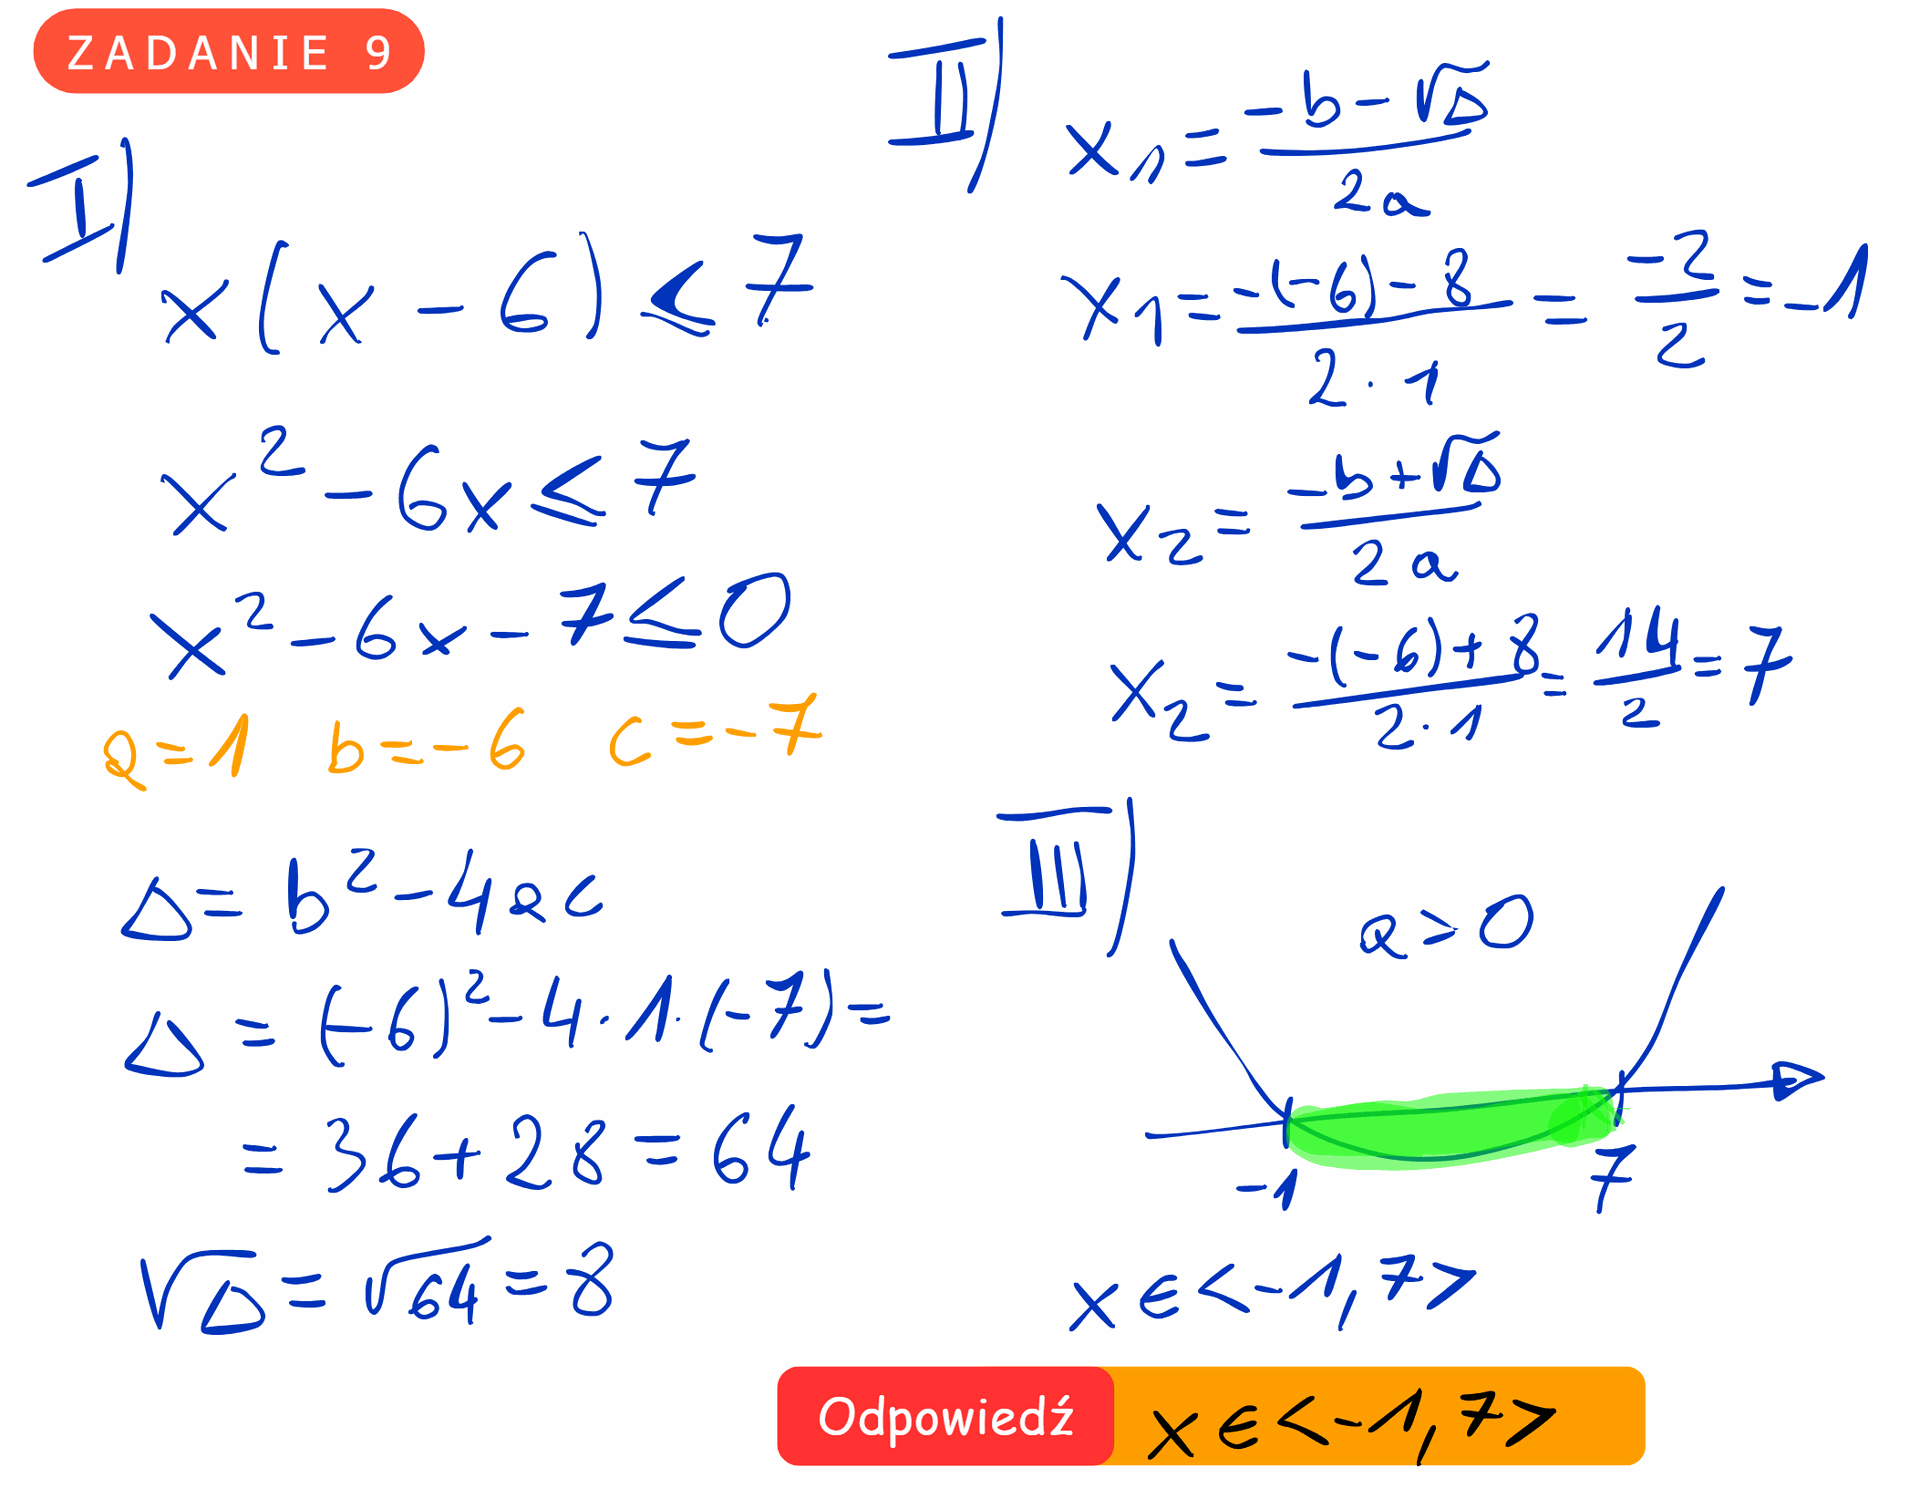 ZADANIE 9
I)
x(x - 6) ≤ 7
x² - 6x ≤ 7
x² - 6x - 7 ≤ 0
a = 1 b = -6 c = -7
Δ = b² - 4ac
Δ = (-6)² - 4 · 1 · (-7) =
= 36 + 28 = 64
√Δ = √64 = 8
II)
x₁ = (-b - √Δ)/2a
x₁ = (-(-6) - 8)/(2 · 1) = -2/2 = -1
x₂ = (-b + √Δ)/2a
x₂ = (-(-6) + 8)/(2 · 1) = 14/2 = 7
III)
a > 0
-1 7
x ∈ <-1, 7>
Odpowiedź x ∈ <-1, 7>